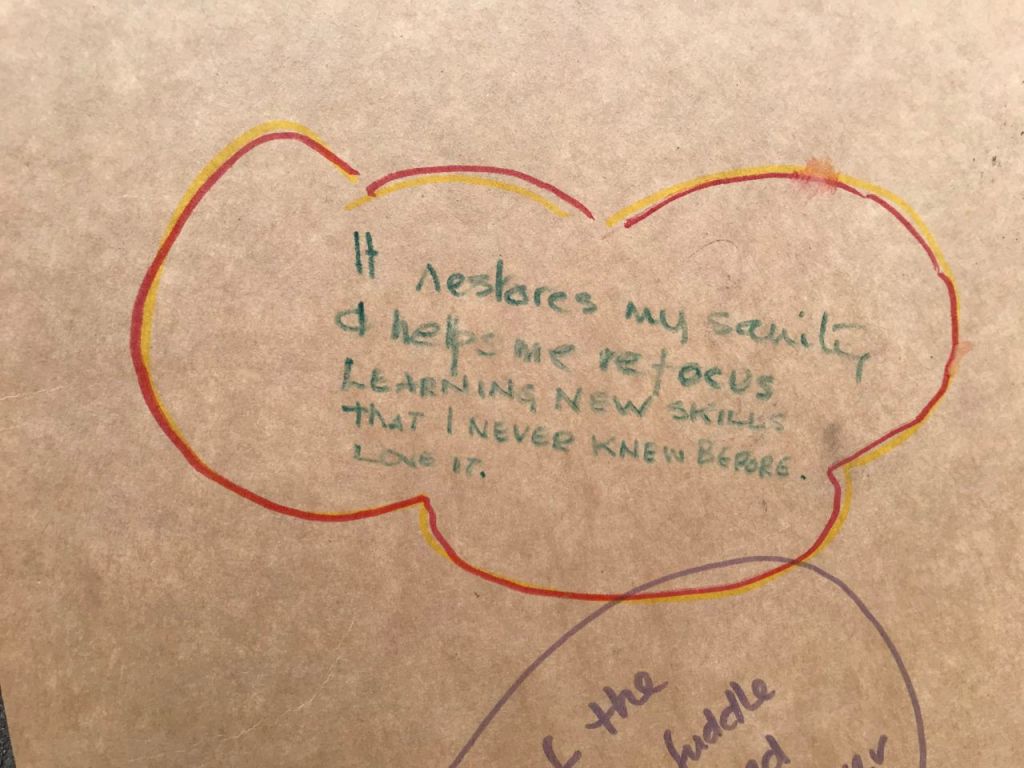 It restores my sanity
& helps me refocus
LEARNING NEW SKILLS
THAT I NEVER KNEW BEFORE.
LOVE IT.
the
huddle